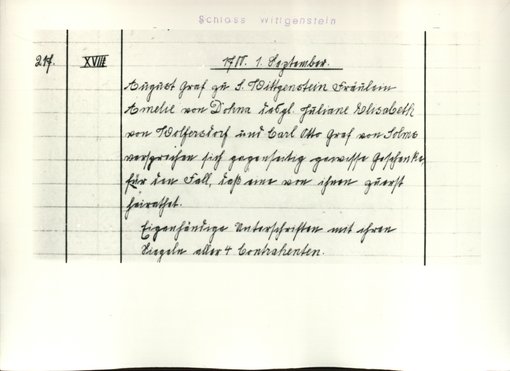 Schloss Wittgenstein
217. XVIII 1. September.
August Graf zu S. Wittgenstein Fräulein
Amelie von Dohna desgl. Juliane Elisabeth
von Wolfersdorf und Carl Otto Graf von Solms
versprechen sich gegenseitig gewisse Geschenke,
für den Fall, daß eine von ihnen zuerst
heirathet.
Eigenhändige Unterschriften mit ihren
Siegeln aller 4 Contrahenten.